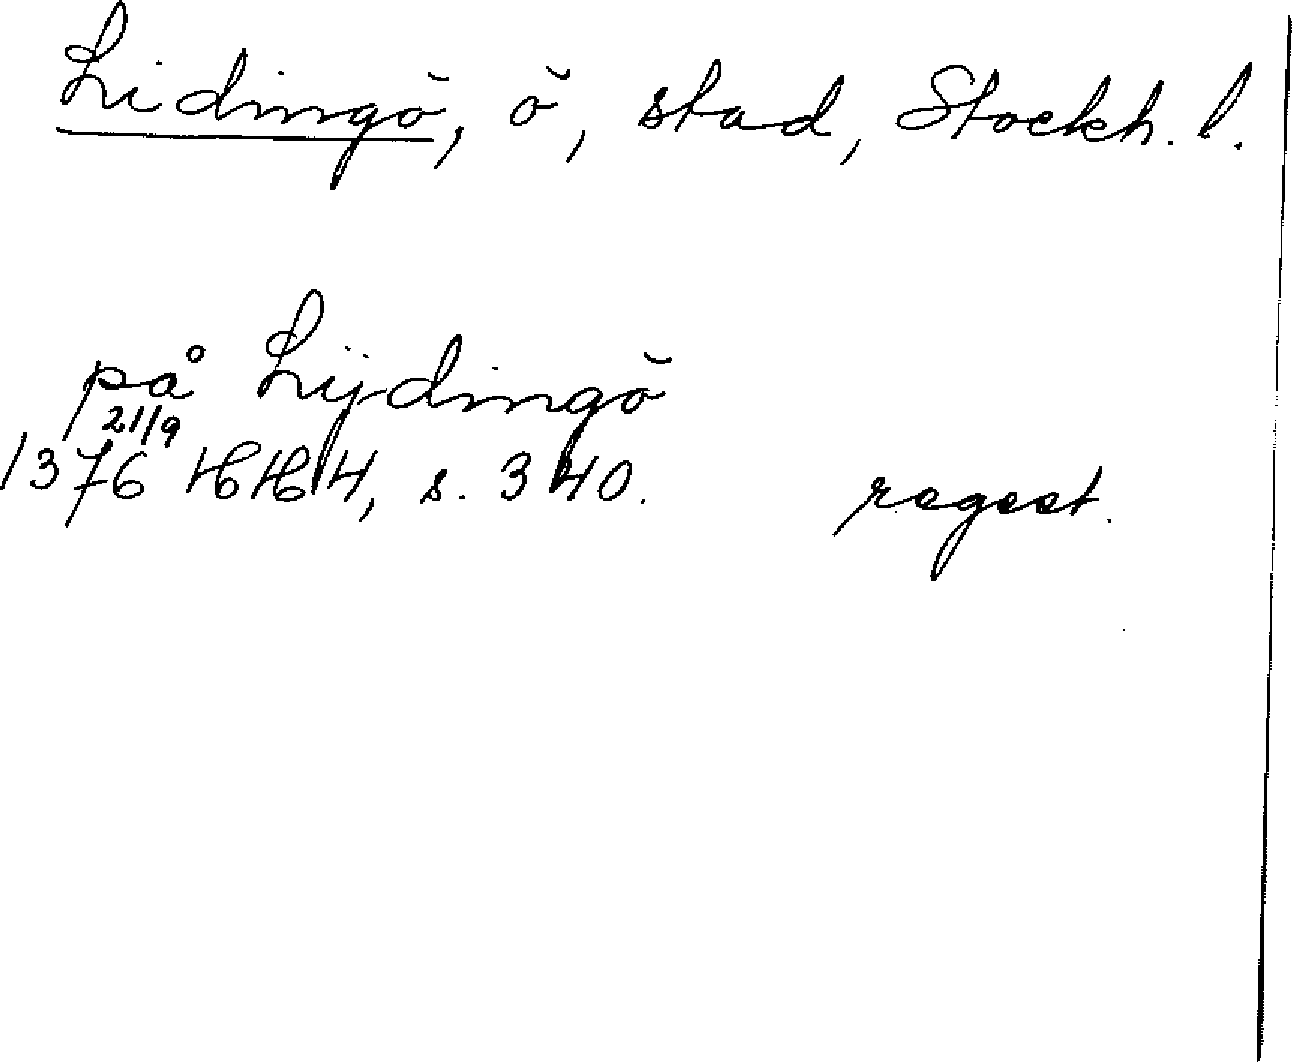 Lidingö, ö, stad, Stockh. l.
på Lijdingö
21/9
1376 HH 4, s. 340. regest.